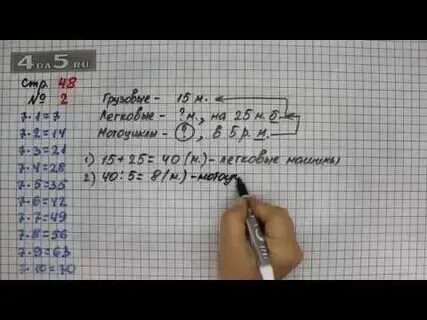 4DA5.RU
Стр. 48
№ 2
7·1=7
7·2=14
7·3=21
7·4=28
7·5=35
7·6=42
7·7=49
7·8=56
7·9=63
7·10=70
Грузовые - 15 м.
Легковые - ? м., на 25 м. б.
Мотоциклы - ?, в 5 р. м.
1) 15+25=40 (м.) - легковые машины
2) 40:5=8 (м.) - мотоц